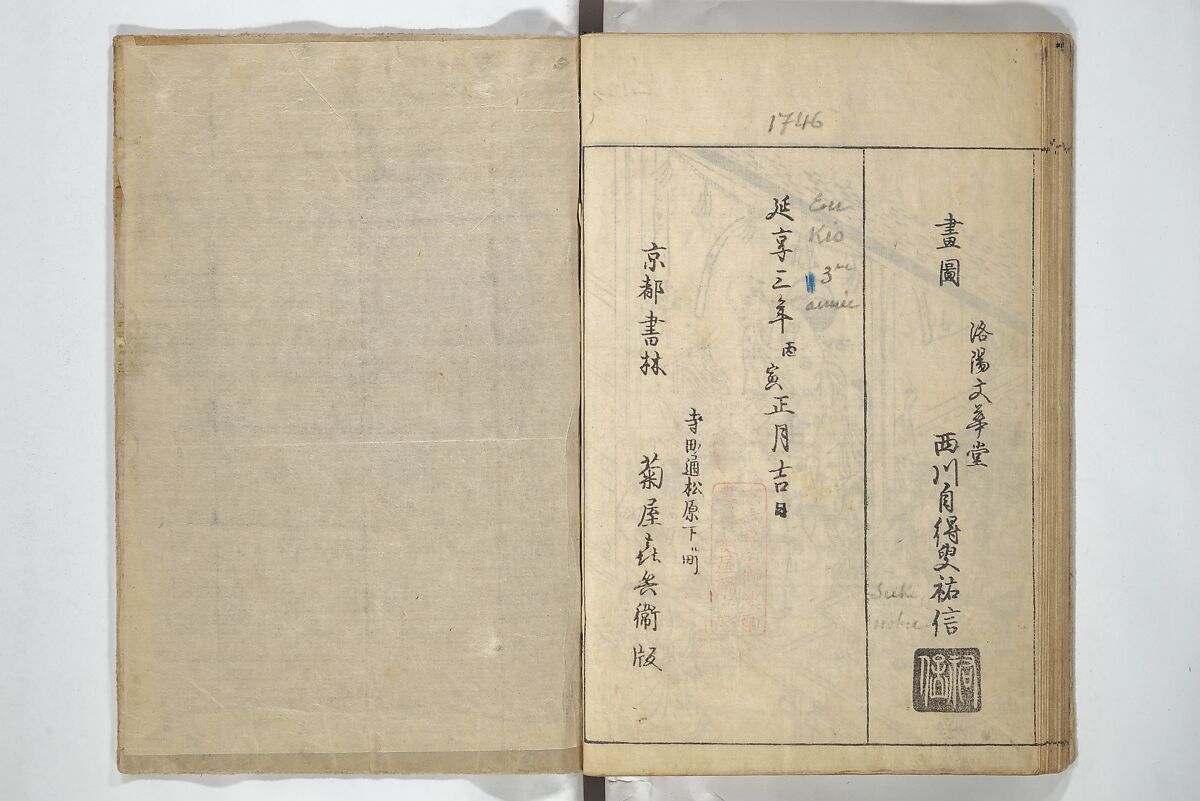 1746
畫圖
洛陽文華堂
西川自得叟祐信
祐信
延享三年丙寅正月吉日
En
Kio
3me
année
京都書林
寺町通松原下ル町
菊屋㐂兵衞版
Suke
nobu